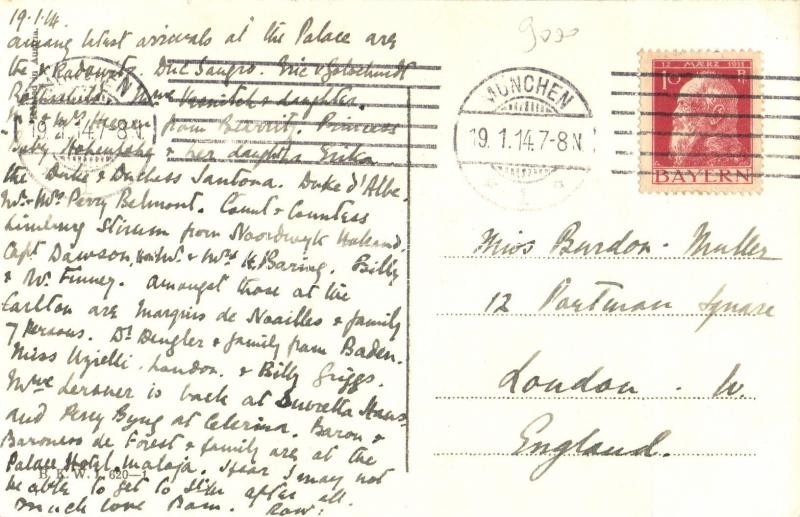 19.1.14.
among latest arrivals at the Palace are
the v Radowitz. Duc Sangro. Eric v Golschmidt
Rothschild. Mme & daughter.
& Mrs from Biarritz. Princess
Hohenlohe & her daughter Erika
the Duke & Duchess Santona. Duke d'Albe.
Mr. Mrs Perry Belmont. Count & Countess
Limburg Stirum from Noordwyk Holland
Capt Dawson, Hon Mr. & Mrs H. Baring. Billy
& W. Finney. amongst those at the
Carlton are Marquis de Noailles & family
7 Persons. Dr Dengler & family from Baden.
Miss Uzielli. London. & Billy Griggs.
Mme Lersner is back at Suvretta Haus
and Percy Byng at Celerina. Baron &
Baroness de Forest & family are at the
Palace Hotel Maloja. I fear I may not
be able to get to after all.
Much love
B. K. W. I. 620-1
9020
MÜNCHEN
19. 1. 14. 7-8 N.
MÜNCHEN
19. 1. 14. 7-8 N.
12 MÄRZ 1911
10 P
BAYERN
Miss Burdon-Muller
12 Portman Square
London. W.
England.